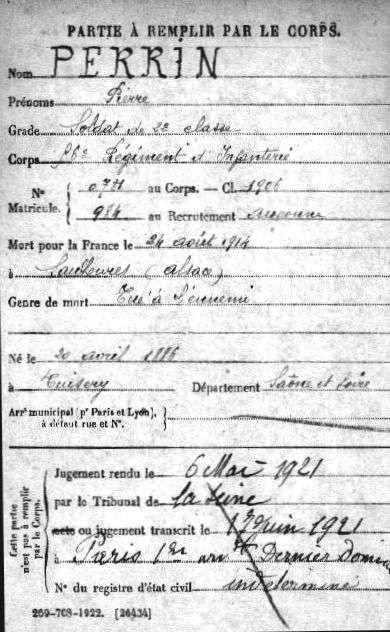 PARTIE À REMPLIR PAR LE CORPS.
Nom PERRIN
Prénoms Pierre
Grade Soldat de 2e classe
Corps 56e Régiment d'Infanterie
N° Matricule. { 0781 au Corps. — Cl. 1906
984 au Recrutement
Mort pour la France le 24 août 1914
à (Alsace)
Genre de mort Tué à l'ennemi
Né le 20 avril 1886
à Cuisery Département Saône et Loire
Arrt municipal (pr Paris et Lyon), à défaut rue et N°.
Cette partie n'est pas à remplir par le Corps.
Jugement rendu le 6 Mai 1921
par le Tribunal de la Seine
acte ou jugement transcrit le 17 Juin 1921
à Paris 1er arrt Dernier Domici
N° du registre d'état civil indéterminé
269-708-1922. [26434]